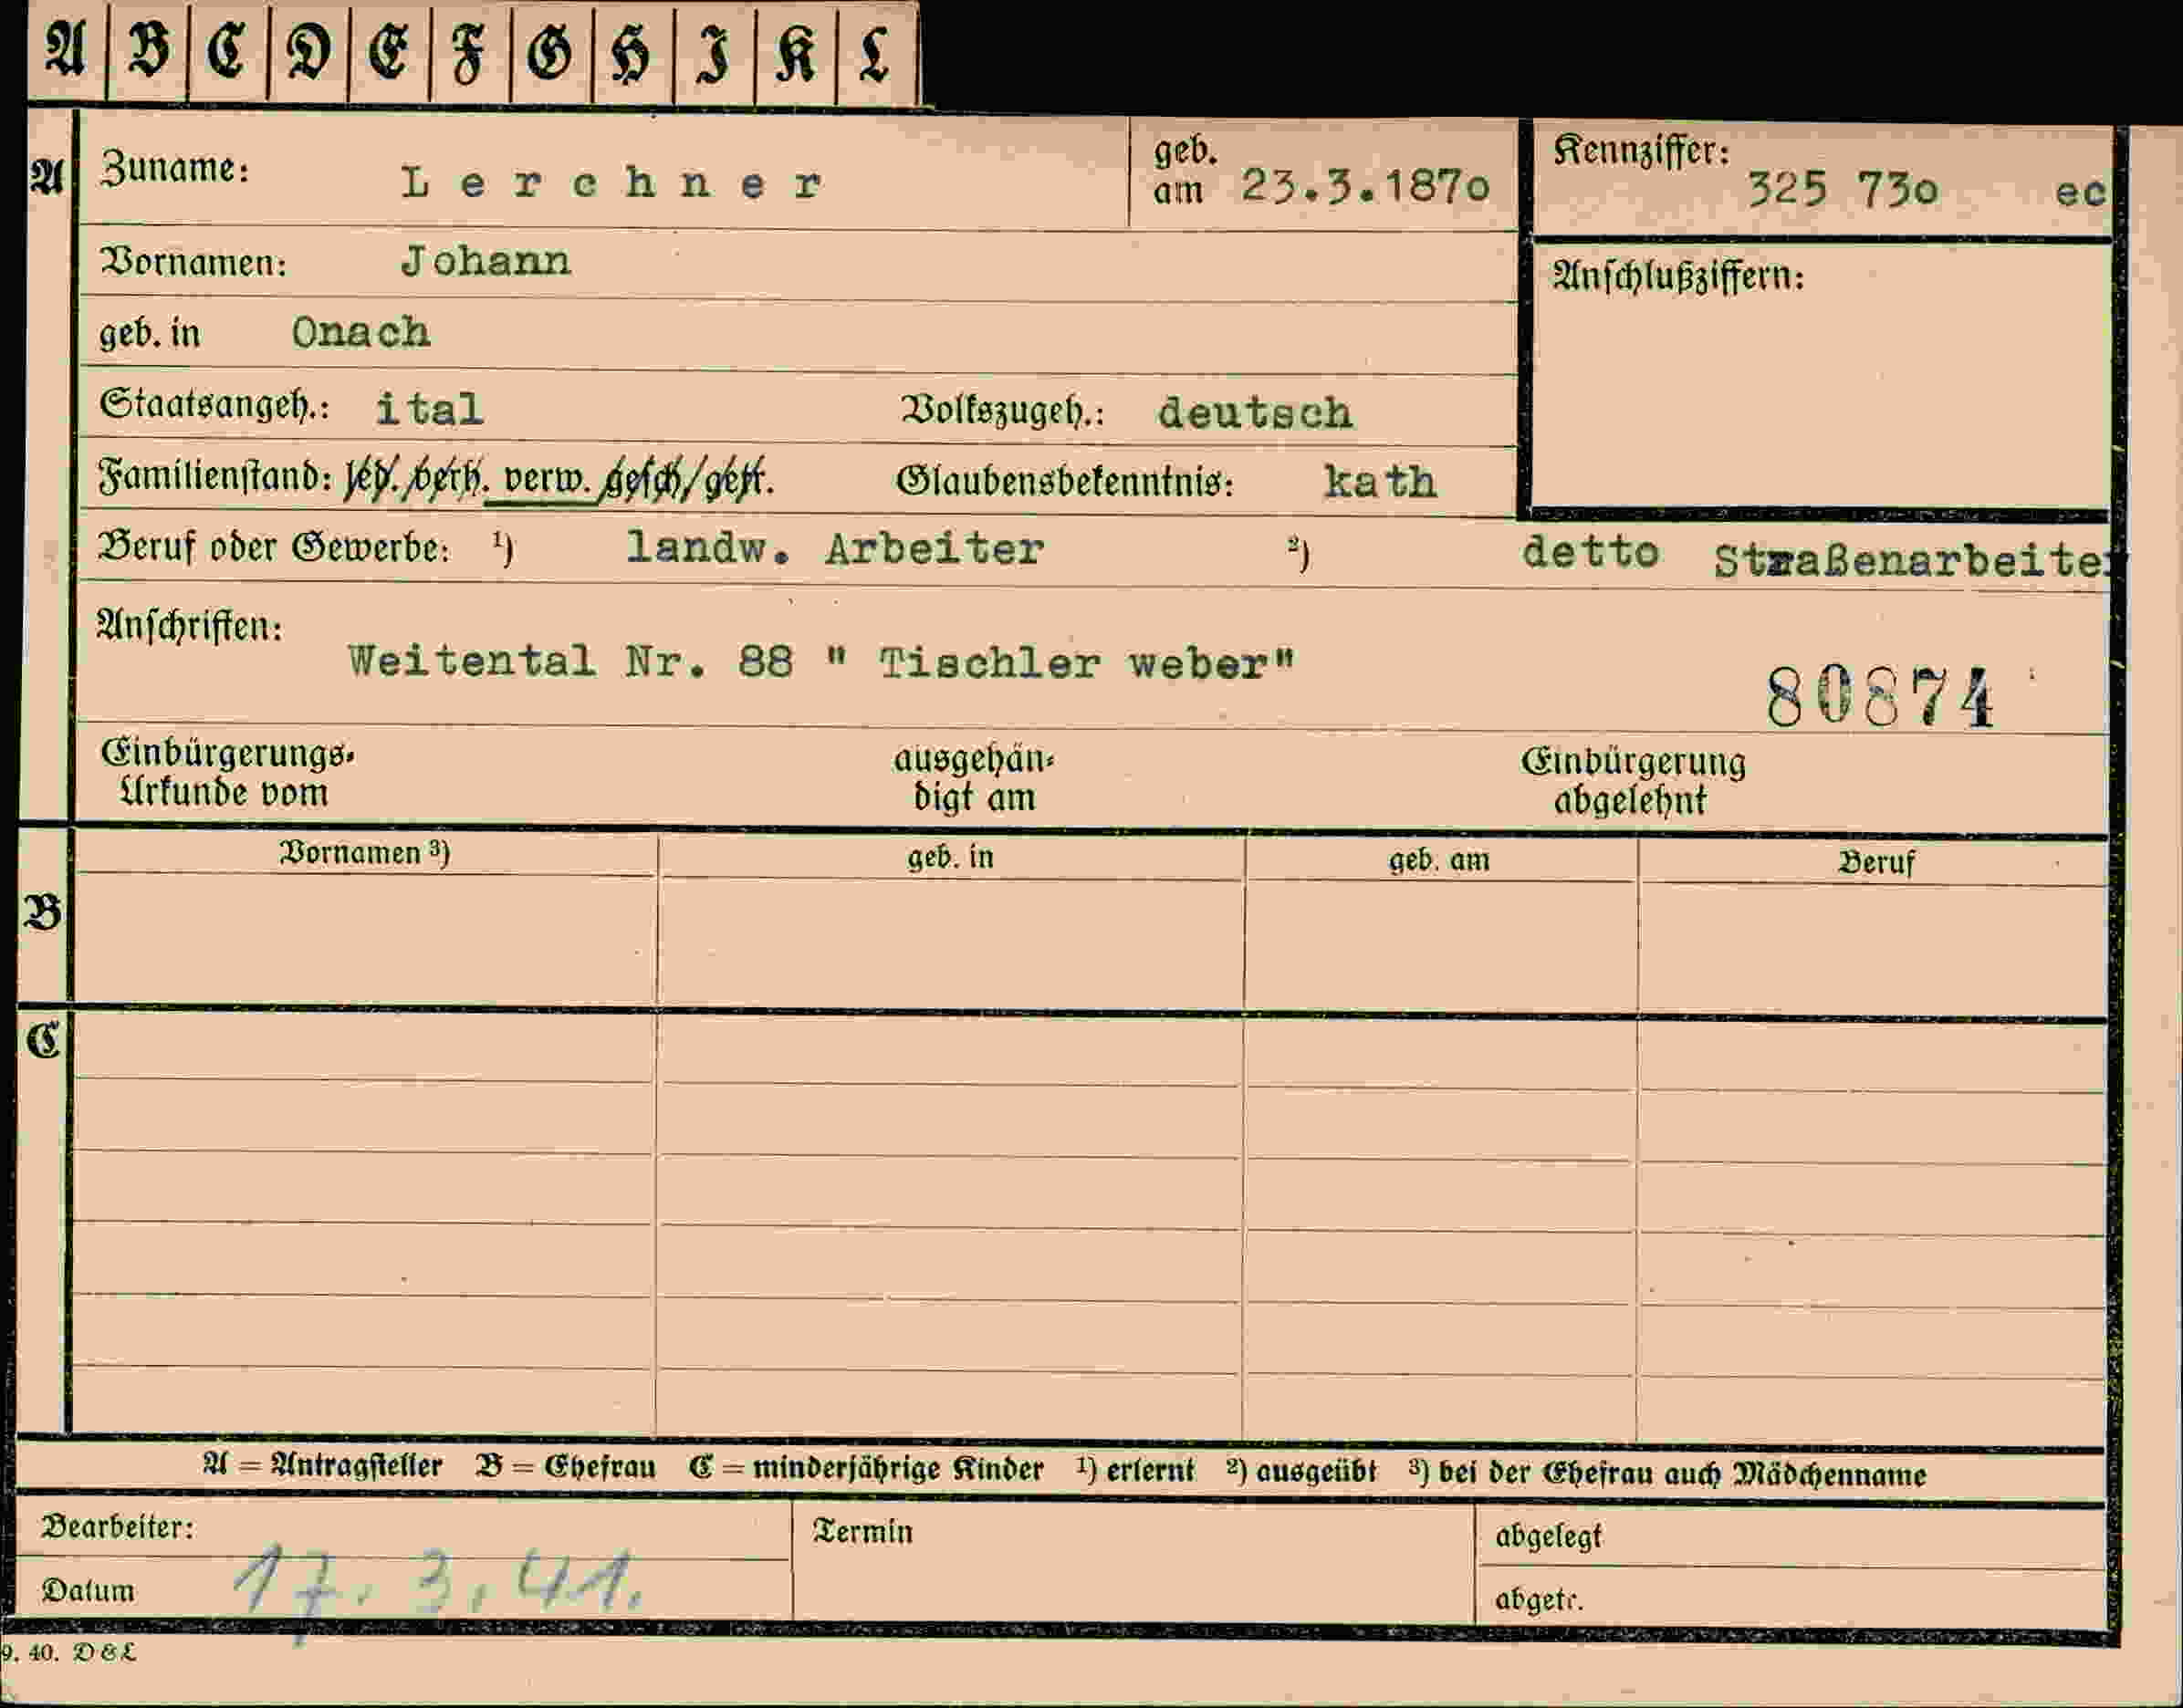 A B C D E F G H I K L
A Zuname: Lerchner geb. am 23.3.187o Kennziffer: 325 73o ec
Vornamen: Johann Anschlußziffern:
geb. in Onach
Staatsangeh.: ital Volkszugeh.: deutsch
Familienstand: led. verh. verw. gesch/getr. Glaubensbekenntnis: kath
Beruf oder Gewerbe: ¹) landw. Arbeiter ²) detto Straßenarbeiter
Anschriften:
Weitental Nr. 88 " Tischler weber"
80874
Einbürgerungs- ausgehän- Einbürgerung
Urkunde vom digt am abgelehnt
Vornamen ³) geb. in geb. am Beruf
B
C
A = Antragsteller B = Ehefrau C = minderjährige Kinder ¹) erlernt ²) ausgeübt ³) bei der Ehefrau auch Mädchenname
Bearbeiter: Termin abgelegt
Datum 17. 3. 41. abgetr.
9. 40. D & L